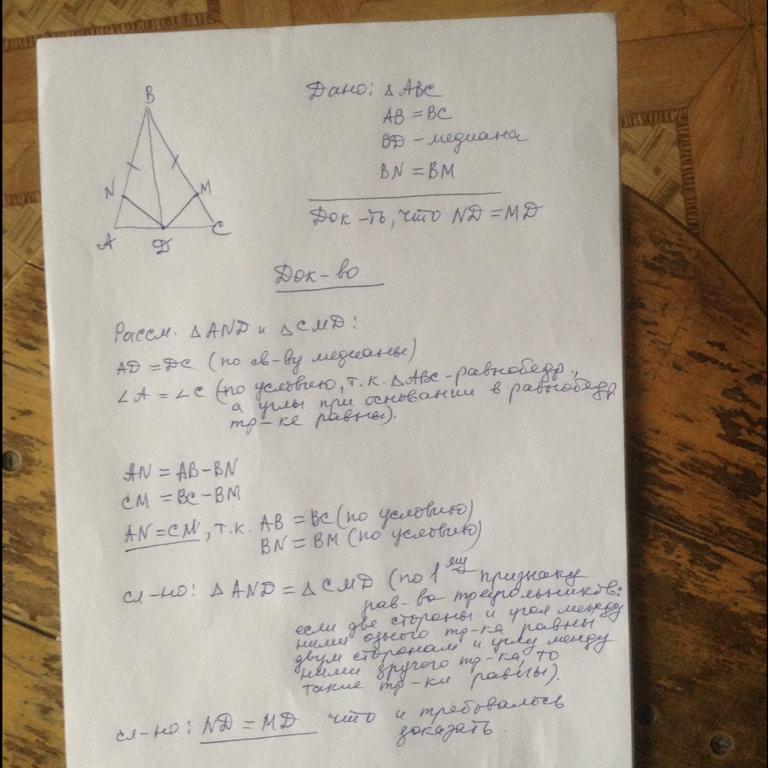 B
N
M
A
D
C
Дано: △ABC
AB = BC
BD - медиана
BN = BM
Док-ть, что ND = MD
Док-во
Рассм. △AND и △CMD:
AD = DC (по св-ву медианы)
∠A = ∠C (по условию, т.к. △ABC - равнобедр.,
а углы при основании в равнобедр.
тр-ке равны).
AN = AB-BN
CM = BC-BM
AN = CM, т.к. AB = BC (по условию)
BN = BM (по условию)
сл-но: △AND = △CMD (по 1му признаку
рав-ва треугольников:
если две стороны и угол между
ними одного тр-ка равны
двум сторонам и углу между
ними другого тр-ка, то
такие тр-ки равны).
сл-но: ND = MD что и требовалось
доказать.